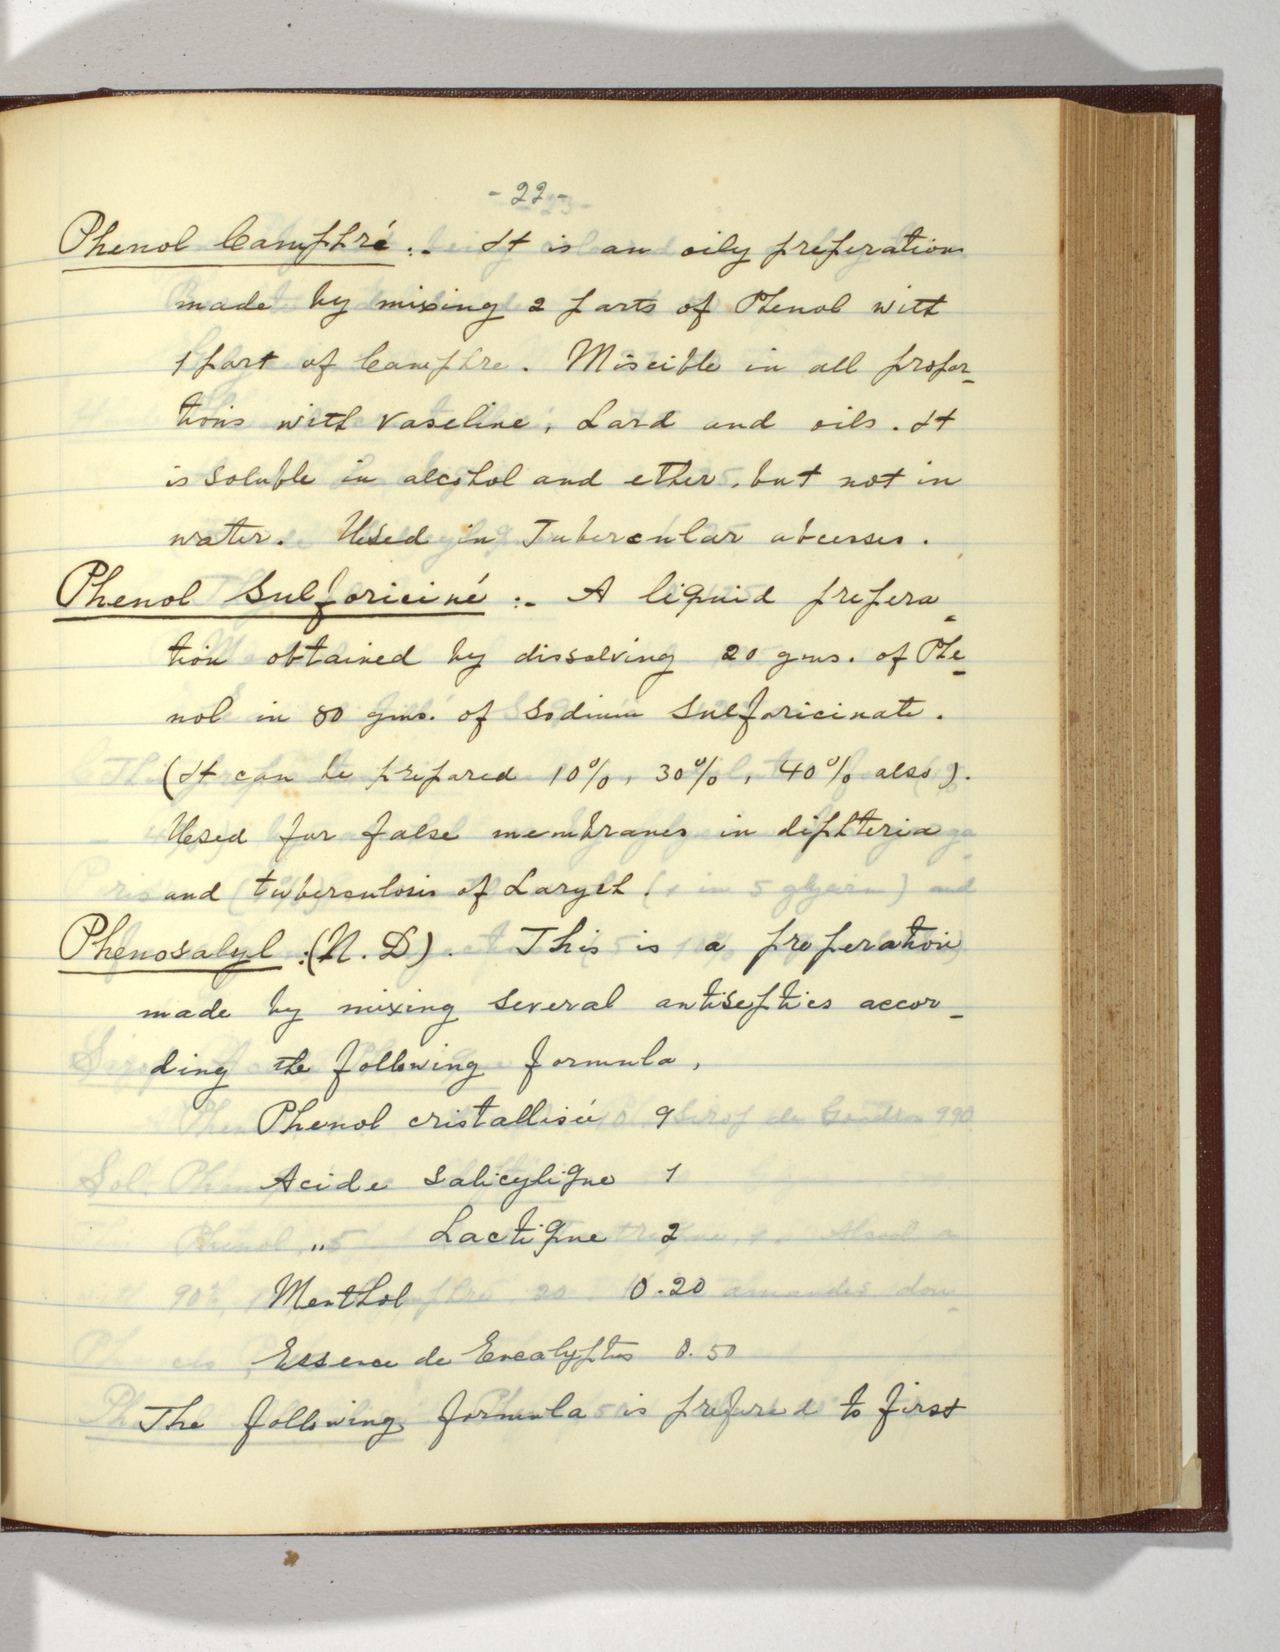 - 22 -
Phenol Camphré :- It is an oily preperation
made by mixing 2 parts of Phenol with
1 part of Camphre. Miscible in all propor-
tions with vaseline, Lard and oils. It
is soluble in alcohol and ether, but not in
water. Used in Tubercular abcesses.
Phenol Sulforiciné :- A liquid prepera-
tion obtained by dissolving 20 gms. of Phe-
nol in 80 gms. of Sodium Sulforicinate.
(It can be prepared 10%, 30%, 40% also).
Used for false membranes in diphteria
and tuberculosis of Larych.
Phenosalyl :(N.D). This is a preperation
made by mixing several antiseptics accor-
ding the following formula,
Phenol cristallisé 9
Acide Salicylique 1
,, Lactique 2
Menthol 0.20
Essence de Eucalyptus 0.50
The following formula is prefered to first